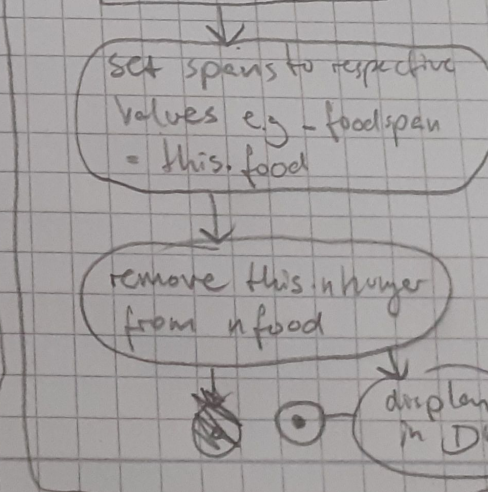 set spans to respective
values e.g - foodspan
= this.food
remove this.nhunger
from nfood
display
in D